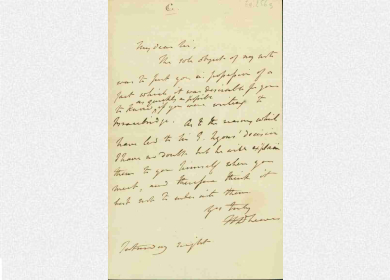 C
My dear Sir,
The sole object of my note
was to put you in possession of a
fact which it was desirable for you
to know, as quickly as possible if you were writing to
As to the reasons which
have led to Sir E. Lyons' decision
I have no doubt but he will explain
them to you himself when you
meet, and therefore think it
best not to enter into them
Yrs truly
Saturday night